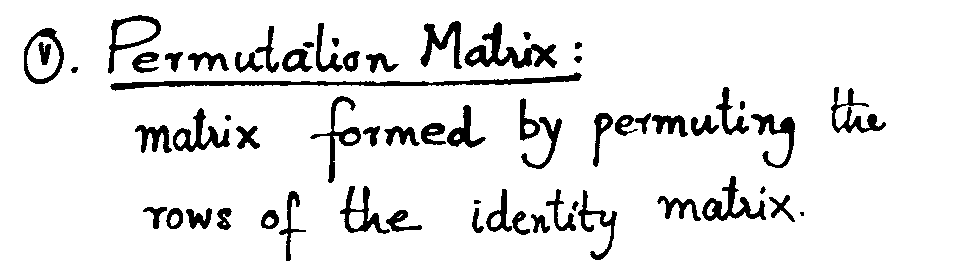 Ⓥ. Permutation Matrix :
matrix formed by permuting the
rows of the identity matrix.